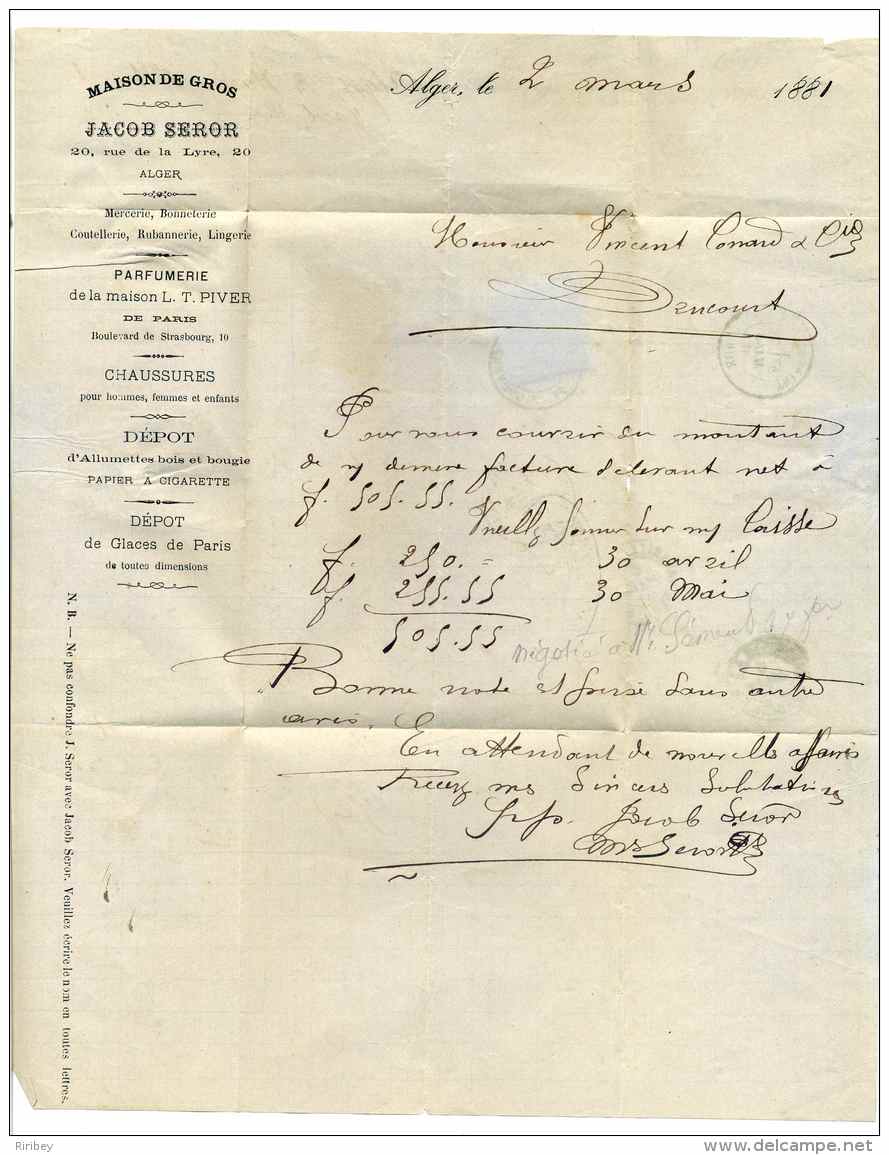 MAISON DE GROS
JACOB SEROR
20, rue de la Lyre, 20
ALGER
Mercerie, Bonneterie
Coutellerie, Rubannerie, Lingerie
PARFUMERIE
de la maison L. T. PIVER
DE PARIS
Boulevard de Strasbourg, 10
CHAUSSURES
pour hommes, femmes et enfants
DÉPOT
d'Allumettes bois et bougie
PAPIER A CIGARETTE
DÉPOT
de Glaces de Paris
de toutes dimensions
N. B. — Ne pas confondre J. Seror avec Jacob Seror. Veuillez écrire le nom en toutes lettres.
Alger, le 2 mars 1881
Monsieur Vincent Conard & Cie
Pour vous couvrir du montant
de facture net à
f. 505.55.
sur Caisse
f. 250. = 30 avril
f. 255.55 30 Mai
505.55
négocié à Mr.
Bonne note et sans autre
avis.
En attendant de nouvelles affaires
Recevez mes Sincères Salutations
Jacob Seror
Seror
Riribey
www.delcampe.net